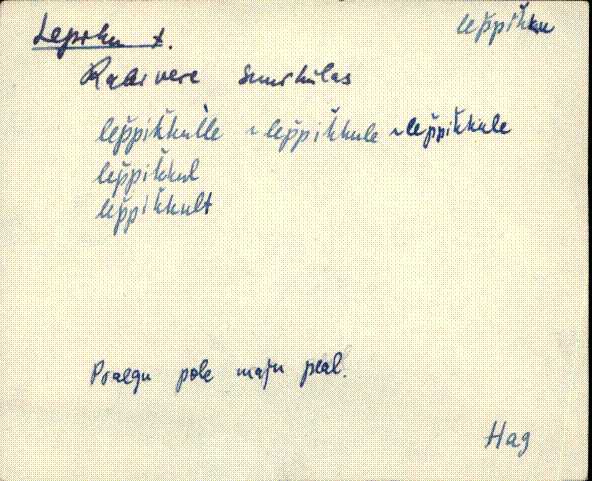 Lepiku t. lep̆pik̆ku
Rabivere Suurkülas
lep̆pik̆kulle ~ lep̆pik̆kule ~ lep̆pik̆kule
lep̆pik̆kul
lep̆pik̆kult
Praegu pole maju peal.
Hag